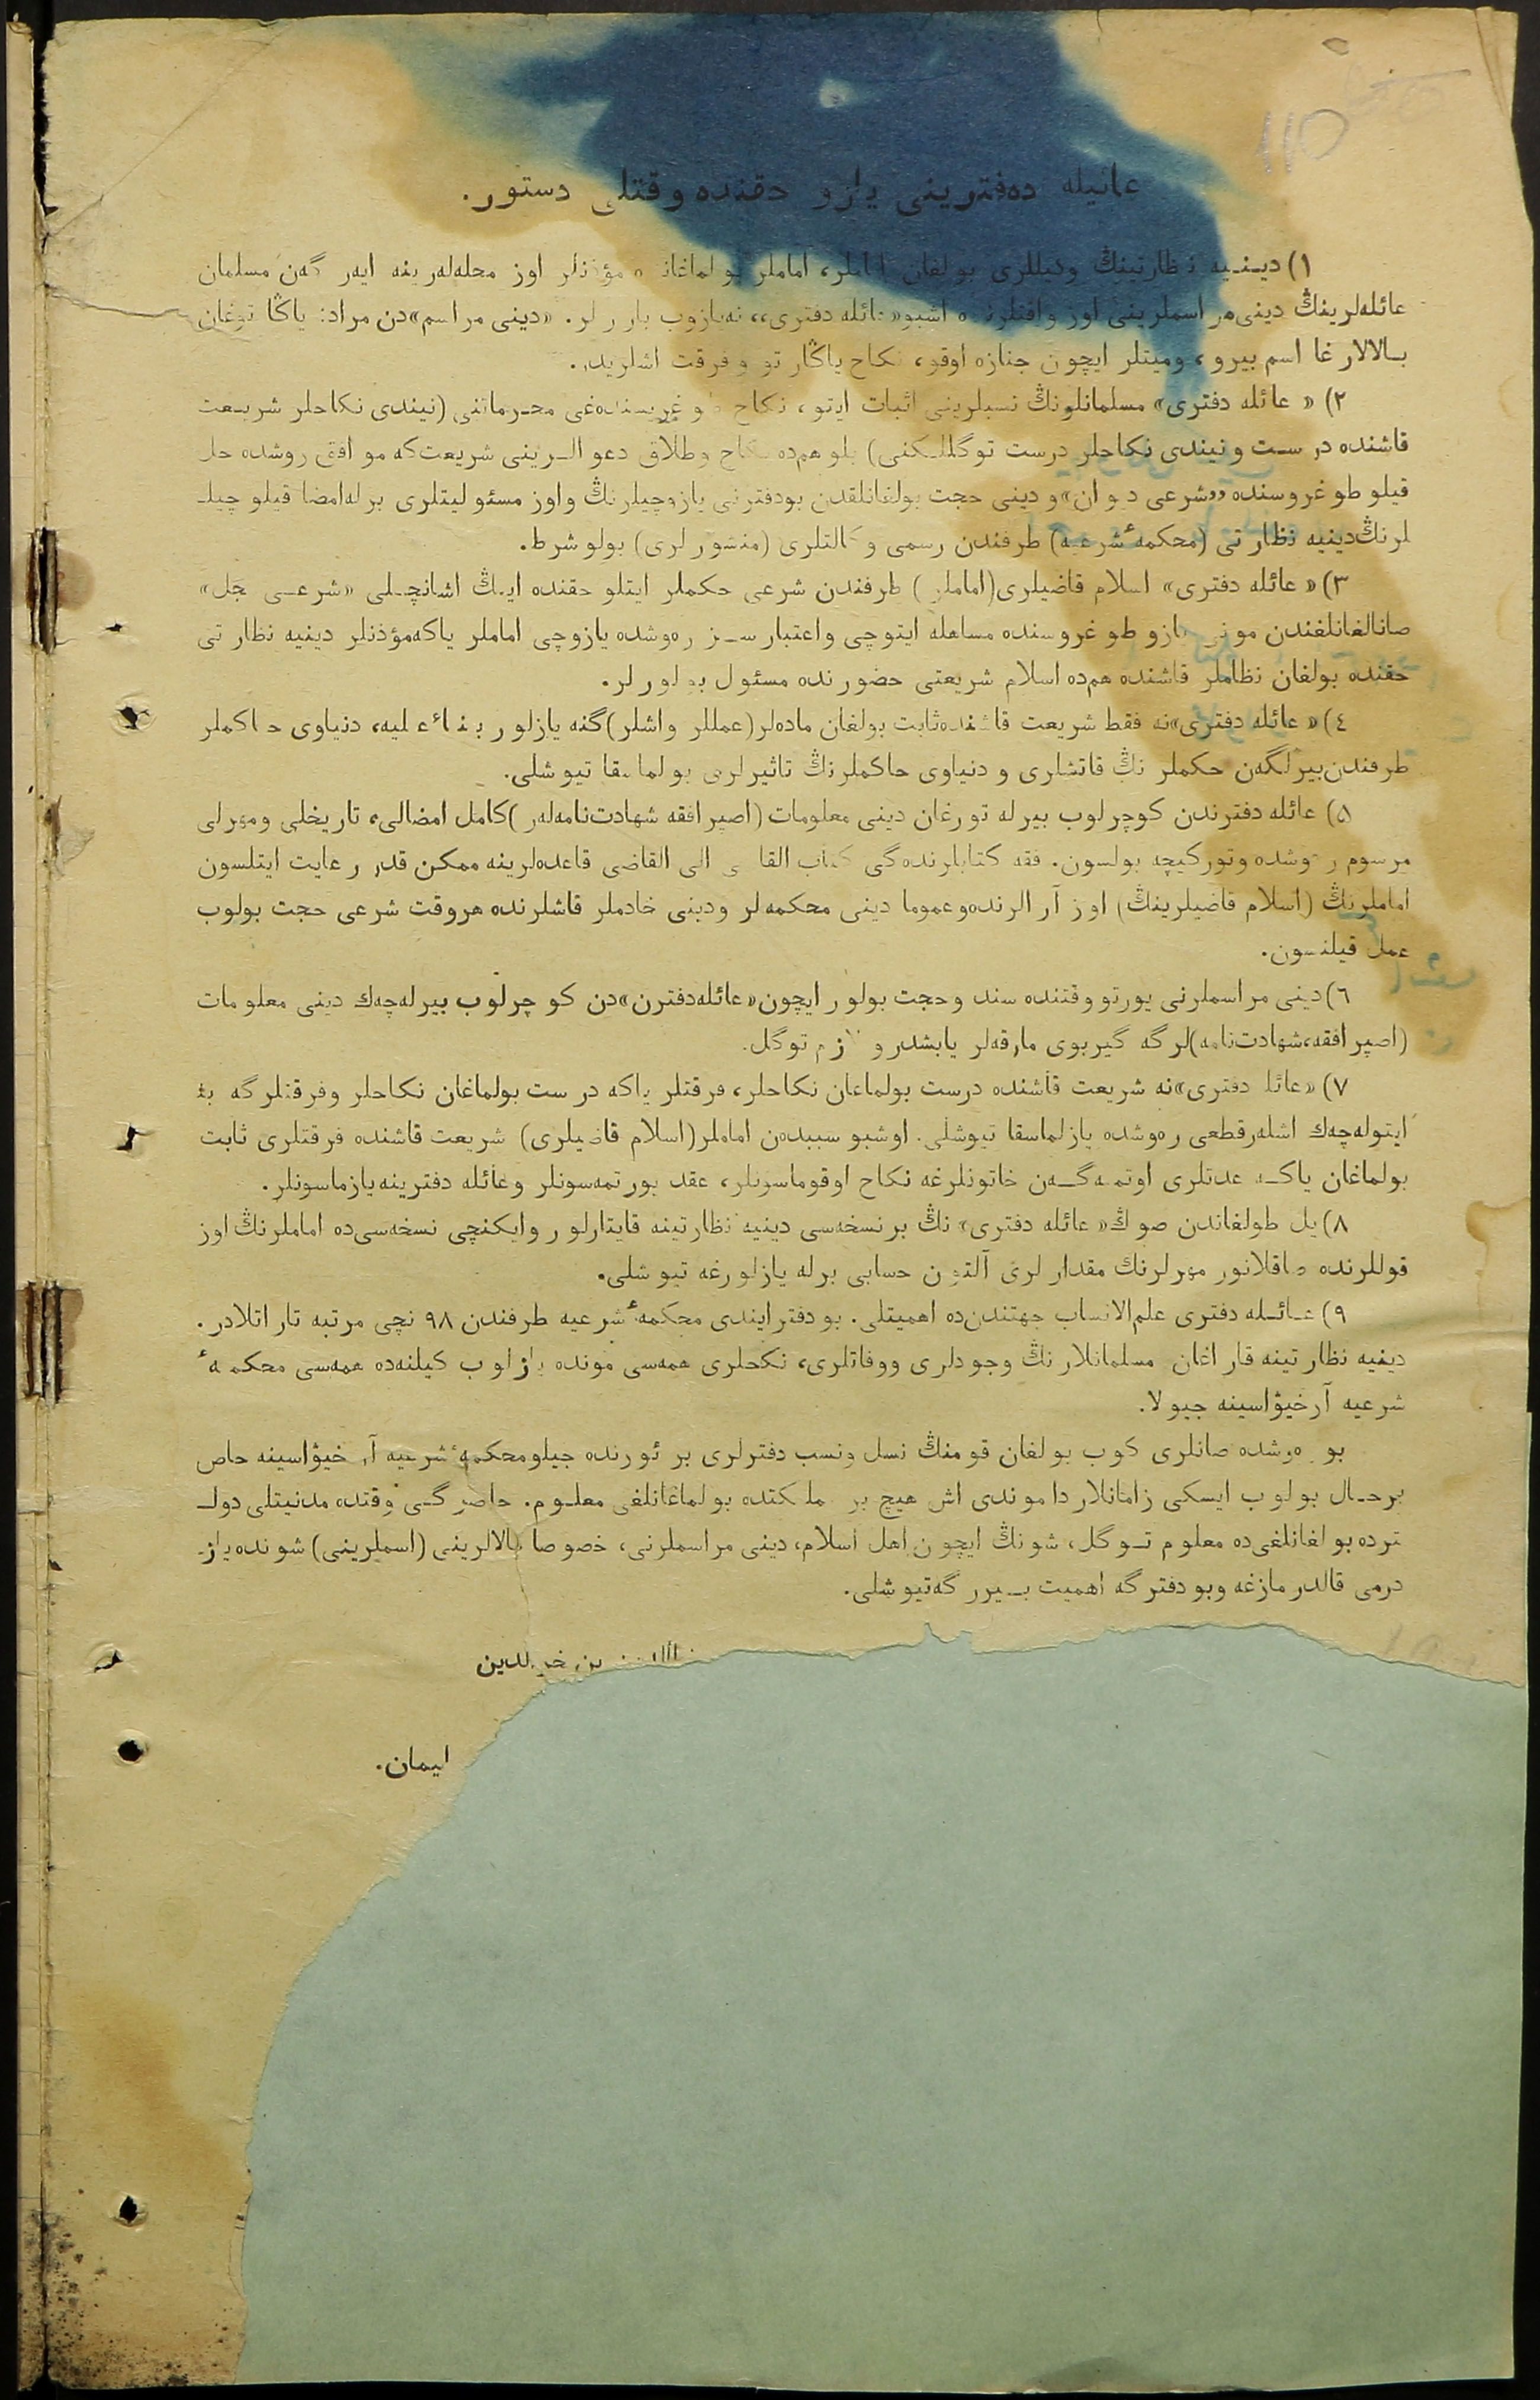 110
عائيله دەفترينى يازو حقنده وقتلى دستور.
١) دينيه نظارتينڭ وكيللرى بولغان اماملر، اماملر بولماغانده مؤذنلر اوز محلەلەرينه ايەرگەن مسلمان
عائلەلرينڭ دينى مراسملرينى اوز وقتلرنده اشبو «عائله دفترى»نه يازوب بارورلر. «دينى مراسم»دن مراد: ياڭا توغان
بالالارغا اسم بيرو، وميتلر ايچون جنازه اوقو، نكاح ياڭارتو و فرقت اشلريدر.
٢) «عائله دفترى» مسلمانلرنڭ نسبلرينى اثبات ايتو، نكاح طوغريسنده‌غى محرماتنى (نيندى نكاحلر شريعت
قاشنده درست و نيندى نكاحلر درست توگللكنى) بلو هم‌ده نكاح وطلاق دعوالرينى شريعت‌كه موافق روشده حل
قيلو طوغروسنده «شرعى ديوان» و دينى حجت بولغانلقدن بودفترنى يازوچيلرنڭ و اوز مسئوليتلرى برله امضا قيلوچيلـ
لرنڭ دينيه نظارتى (محكمهٔ شرعيه) طرفندن رسمى وكالتلرى (منشورلرى) بولو شرط.
٣) «عائله دفترى» اسلام قاضيلرى (اماملر) طرفندن شرعى حكملر ايتلو حقنده ايڭ اشانچلى «شرعى سجل»
صانالغانلغندن مونى يازو طوغروسنده مساهله ايتوچى واعتبارسز رەوشده يازوچى اماملر ياكه مؤذنلر دينيه نظارتى
حقنده بولغان نظاملر قاشنده هم‌ده اسلام شريعتى حضورنده مسئول بولورلر.
٤) «عائله دفترى»نه فقط شريعت قاشنده ثابت بولغان ماده‌لر (عمللر واشلر) گنه يازلور بناءً عليه، دنياوى حاكملر
طرفندن بيرلگەن حكملرنڭ قاتشلرى و دنياوى حاكملرنڭ تاثيرلرى بولماسقا تيوشلى.
٥) عائله دفترندن كوچرلوب بيرله تورغان دينى معلومات (اصپرافقه شهادت‌نامه‌لەر) كامل امضالى، تاريخلى ومهرلى
مرسوم روشده وتوركيچه بولسون. فقه كتابلرنده‌گى كتاب القاضى الى القاضى قاعده‌لرينه ممكن قدر رعايت ايتلسون
اماملرنڭ (اسلام قاضيلرينڭ) اوز آرالرنده وعموما دينى محكمه‌لر ودينى خادملر قاشلرنده هروقت شرعى حجت بولوب
عمل قيلنسون.
٦) دينى مراسملرنى يورتو وقتنده سند وحجت بولور ايچون «عائله دفترن»دن كوچرلوب بيرله‌چەك دينى معلومات
(اصپرافقه، شهادت‌نامه)لرگه گيربوى مارقه‌لر يابشدرو لازم توگل.
٧) «عائله دفترى»نه شريعت قاشنده درست بولماغان نكاحلر، فرقتلر ياكه درست بولماغان نكاحلر وفرقتلرگه بنا
ايتوله‌چەك اشلەر قطعى رەوشده يازلماسقا تيوشلى. اوشبو سببدەن اماملر (اسلام قاضيلرى) شريعت قاشنده فرقتلرى ثابت
بولماغان ياكه عدتلرى اوتمەگەن خاتونلرغه نكاح اوقوماسونلر، عقد يورتمەسونلر وعائله دفترينه يازماسونلر.
٨) يل طولغاندن صوڭ «عائله دفترى»نڭ برنسخه‌سى دينيه نظارتينه قايتارلور وايكنچى نسخه‌سى‌ده اماملرنڭ اوز
قوللرنده صاقلانور مهرلرنڭ مقدارلرى آلتون حسابى برله يازلورغه تيوشلى.
٩) عائله دفترى علم‌الانساب جهتندن‌ده اهميتلى. بو دفتر ايندى محكمهٔ شرعيه طرفندن ٩٨ نچى مرتبه تاراتلادر.
دينيه نظارتينه قاراغان مسلمانلارنڭ وجودلرى ووفاتلرى، نكحلرى همه‌سى مونده يازلوب كيلنه‌ده همه‌سى محكمهٔ
شرعيه آرخيۋاسينه جيولا.
بو رەوشده صانلرى كوب بولغان قومنڭ نسل ونسب دفترلرى بر ئورنده جيلو محكمهٔ شرعيه آرخيۋاسينه خاص
برحال بولوب ايسكى زامانلاردا موندى اش هيچ بر مملكتده بولماغانلغى معلوم. حاضرگى وقتده مدنيتلى دولـ
ترده بولغانلغى‌ده معلوم توگل، شونڭ ايچون اهل اسلام، دينى مراسملرنى، خصوصا بالالرينى (اسملرينى) شونده يازـ
درمى قالدرمازغه وبو دفترگه اهميت بيررگه تيوشلى.
بن
ايمان.